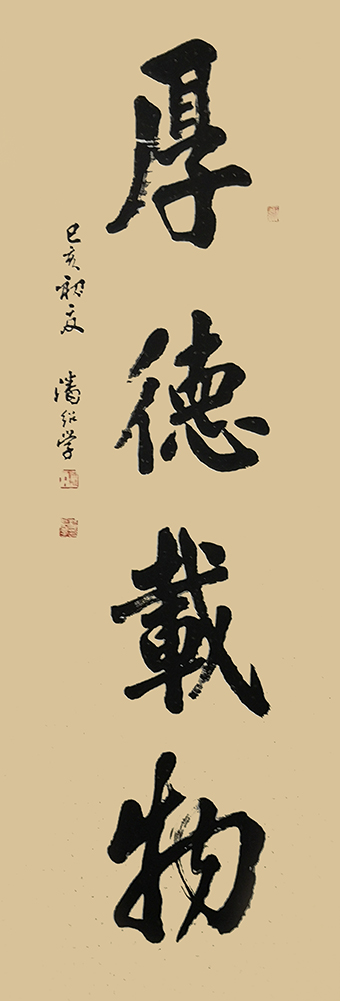 厚德載物
己亥初夏 潘紹学